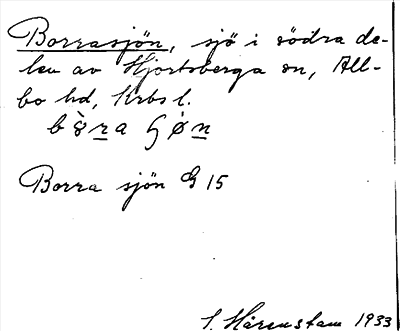 Borrasjön, sjö i södra de-
len av Hjortsberga sn, All-
bo hd, Krbs l.
Borra sjön G 15
S. Härenstam 1933